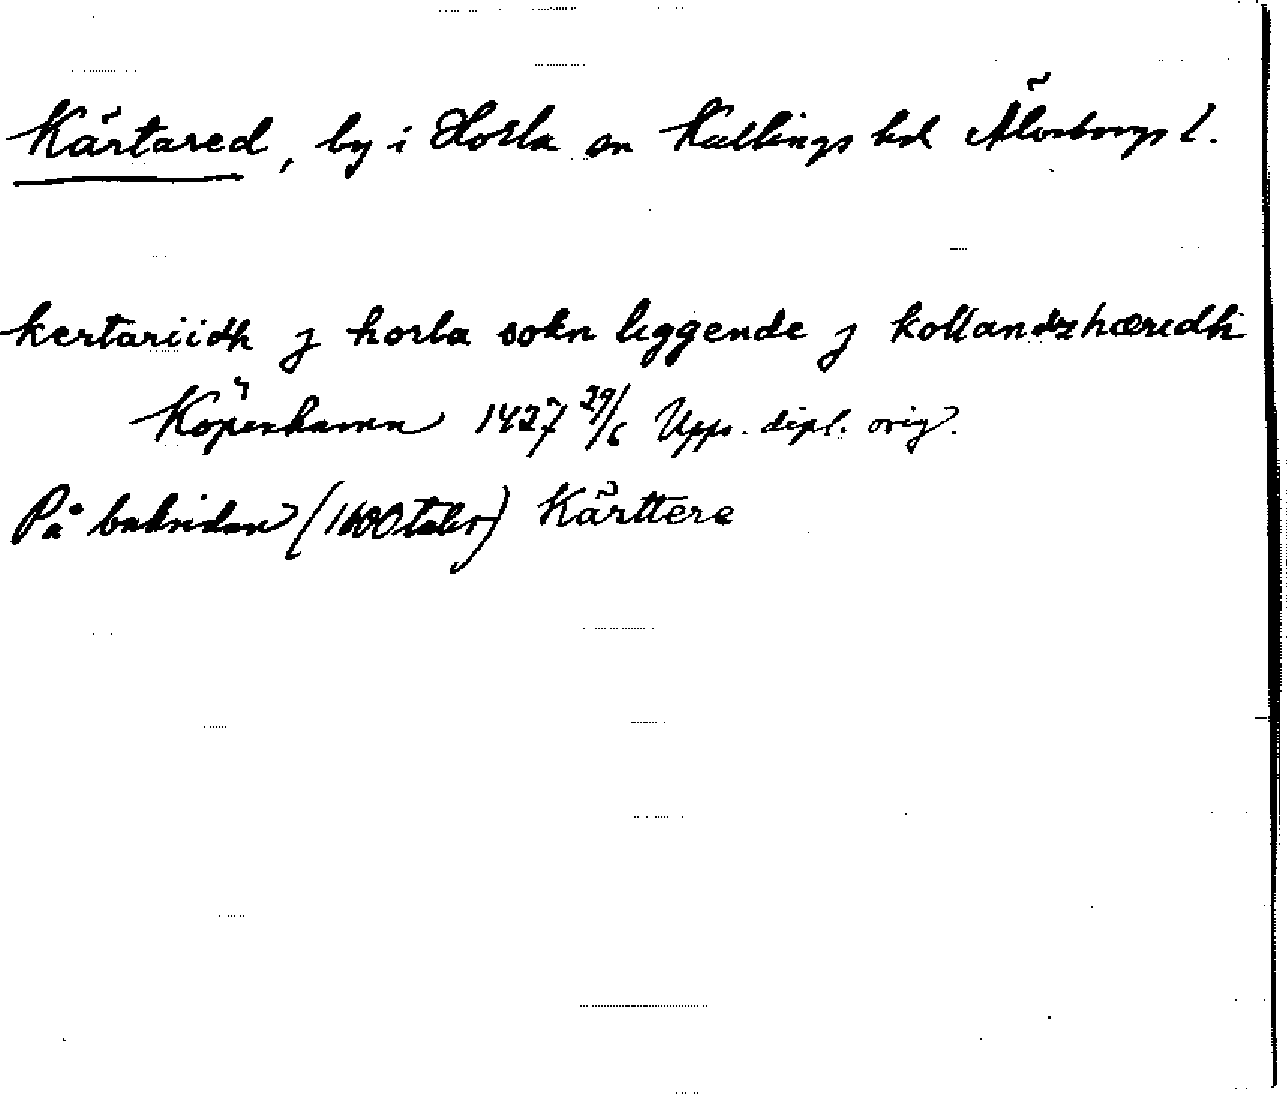 Kärtared, by i Horla sn Kullings hd Älvsborgs l.
kertariidh j horla sokn liggende j kollandzhæredh
Köpenhamn 1427 29/6 Upps. dipl. orig.
På baksidan (1600talet) Kärttere